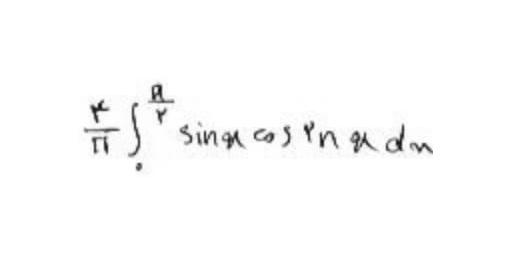 ۴/π ∫۰^(π/۲) sinx cos ۲n x dx